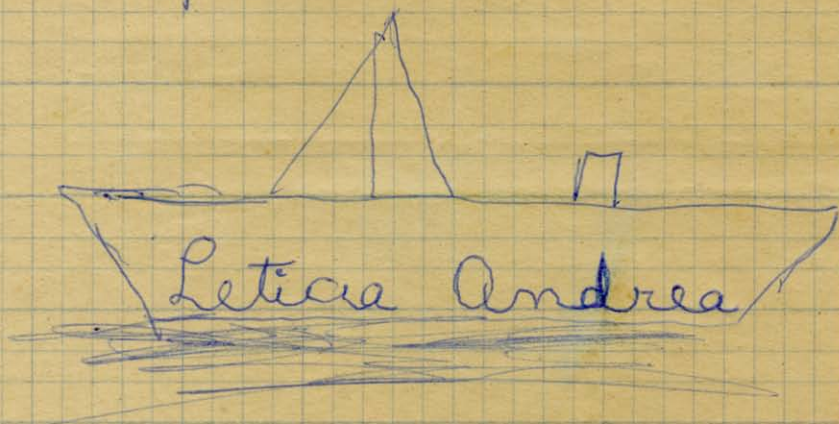 Leticia Andrea